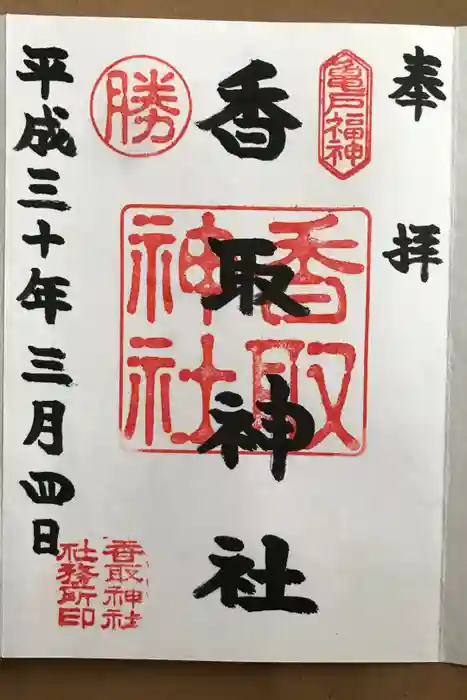 奉拝
亀戸福神
香取神社
香取神社
勝
平成三十年三月四日
香取神社
社務所印